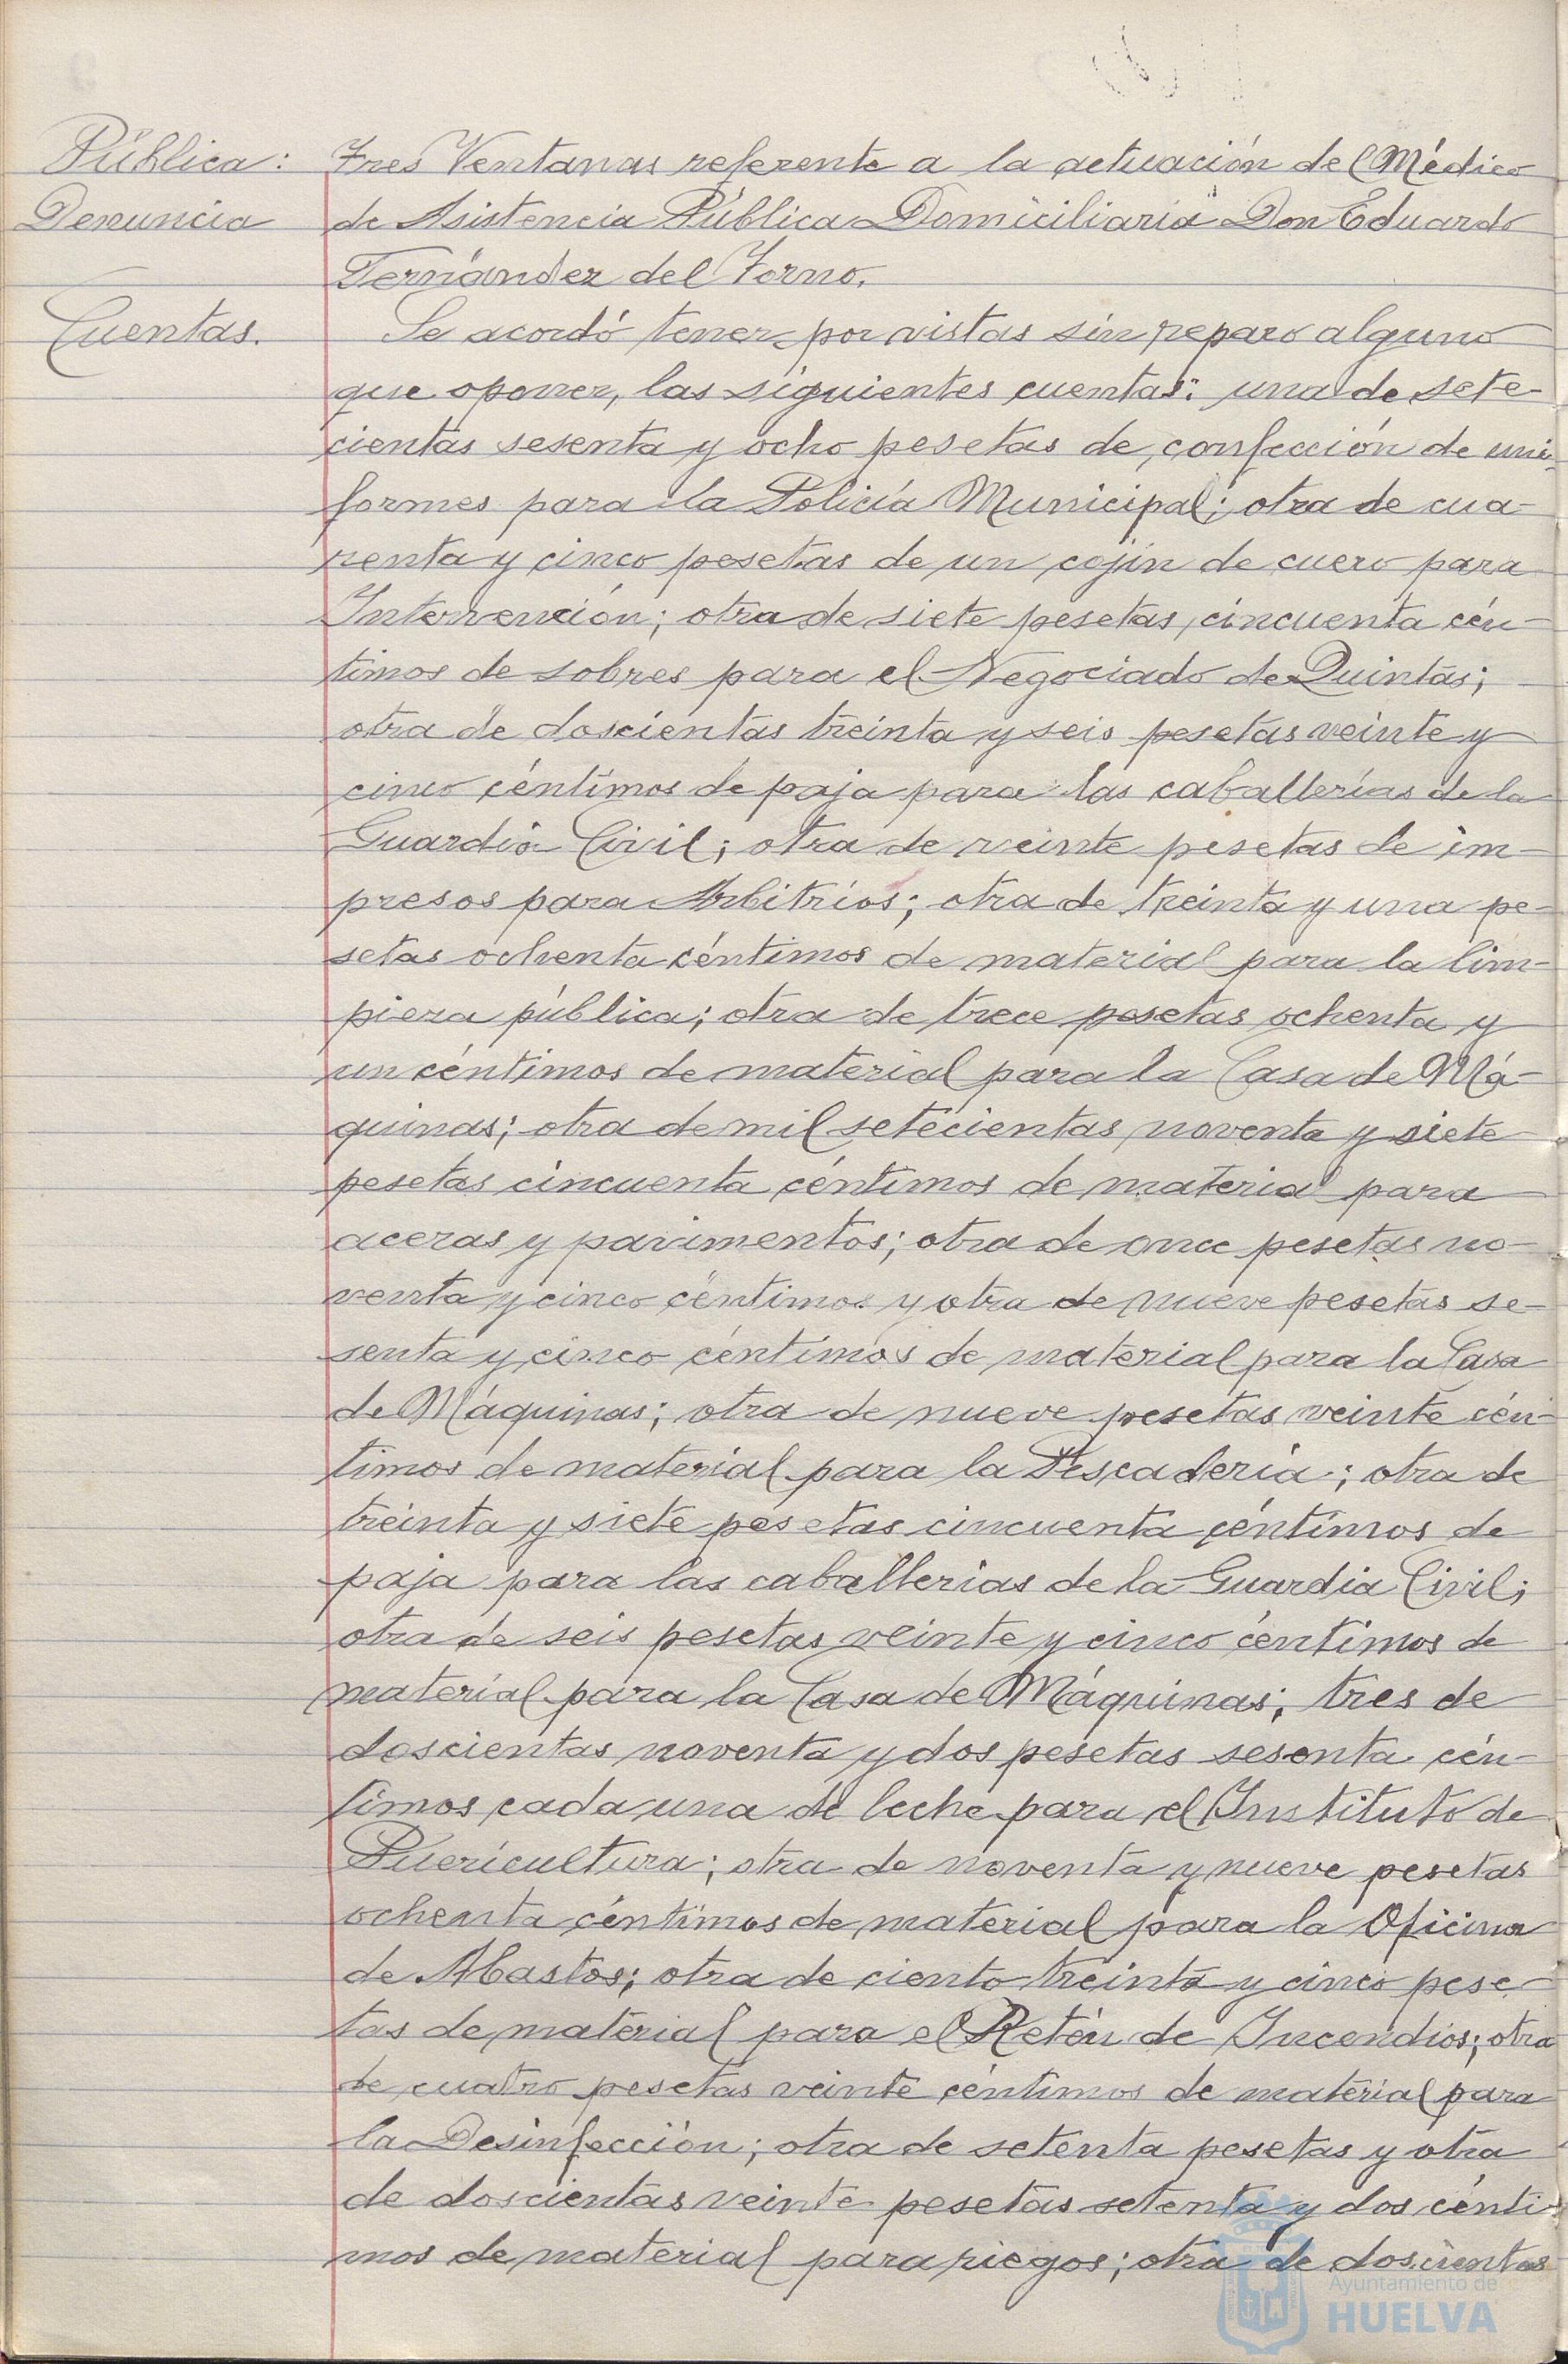 Pública:
Denuncia
Cuentas.
Tres Ventanas referente a la actuación del Médico
de Asistencia Pública Domiciliaria Don Eduardo
Fernández del Torno.
Se acordó tener por vistas sin reparo alguno
que oponer, las siguientes cuentas: una de sete-
cientas sesenta y ocho pesetas de confección de uni-
formes para la Policía Municipal; otra de cua-
renta y cinco pesetas de un cojín de cuero para
Intervención; otra de siete pesetas, cincuenta cén-
timos de sobres para el Negociado de Quintas;
otra de doscientas treinta y seis pesetas veinte y
cinco céntimos de paja para las caballerías de la
Guardia Civil; otra de veinte pesetas de im-
presos para Arbitrios; otra de treinta y una pe-
setas ochenta céntimos de material para la lim-
pieza pública; otra de trece pesetas ochenta y
un céntimos de material para la Casa de Má-
quinas; otra de mil setecientas noventa y siete
pesetas cincuenta céntimos de material para
aceras y pavimentos; otra de once pesetas no-
venta y cinco céntimos y otra de nueve pesetas se-
senta y cinco céntimos de material para la Casa
de Máquinas; otra de nueve pesetas veinte cén-
timos de material para la Pescadería; otra de
treinta y siete pesetas cincuenta céntimos de
paja para las caballerías de la Guardia Civil;
otra de seis pesetas veinte y cinco céntimos de
material para la Casa de Máquinas; tres de
doscientas noventa y dos pesetas sesenta cén-
timos cada una de leche para el Instituto de
Puericultura; otra de noventa y nueve pesetas
ochenta céntimos de material para la Oficina
de Abastos; otra de ciento treinta y cinco pese-
tas de material para el Retén de Incendios; otra
de cuatro pesetas veinte céntimos de material para
la Desinfección; otra de setenta pesetas y otra
de doscientas veinte pesetas setenta y dos cénti-
mos de material para riegos; otra de doscientas
Ayuntamiento de
HUELVA